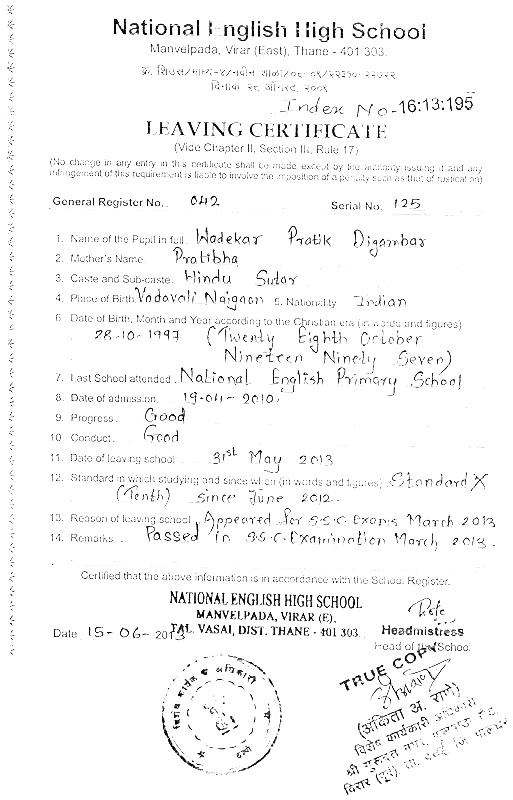 National English High School
Manvelpada, Virar (East), Thane - 401 303.
दिनांक २८ ऑगस्ट, २००९
Index No-16:13:195
LEAVING CERTIFICATE
(Vice Chapter II, Section III, Rule 17)
(No change in any entry in this certificate shall be made except by the authority issuing it and any
infringement of this requirement is liable to involve the imposition of a penalty such as that of rustication)
General Register No. 042 Serial No. 125
1. Name of the Pupil in full Wadekar Pratik Digambar
2. Mother's Name Pratibha
3. Caste and Sub-caste Hindu Sutar
4. Place of Birth Vadavali Naigaon 5. Nationality Indian
6 Date of Birth, Month and Year according to the Christian era (in words and figures)
28-10-1997 (Twenty Eighth October
Nineteen Ninety Seven)
7. Last School attended National English Primary School
8. Date of admission 19-04-2010.
9. Progress Good
10. Conduct Good
11. Date of leaving school 31st May 2013
12. Standard in which studying and since when (in words and figures) Standard X
(Tenth) since June 2012.
13. Reason of leaving school Appeared for S.S.C Exams March 2013
14. Remarks Passed in S.S.C. Examination March 2013.
Certified that the above information is in accordance with the School Register.
NATIONAL ENGLISH HIGH SCHOOL
MANVELPADA, VIRAR (E),
Date 15-06-2013 TAL. VASAI, DIST. THANE - 401 303.
Headmistress
Head of the School
TRUE COPY
(अंकिता अ. राणे)
विशेष कार्यकारी अधिकारी
विशेष कार्यकारी अधिकारी